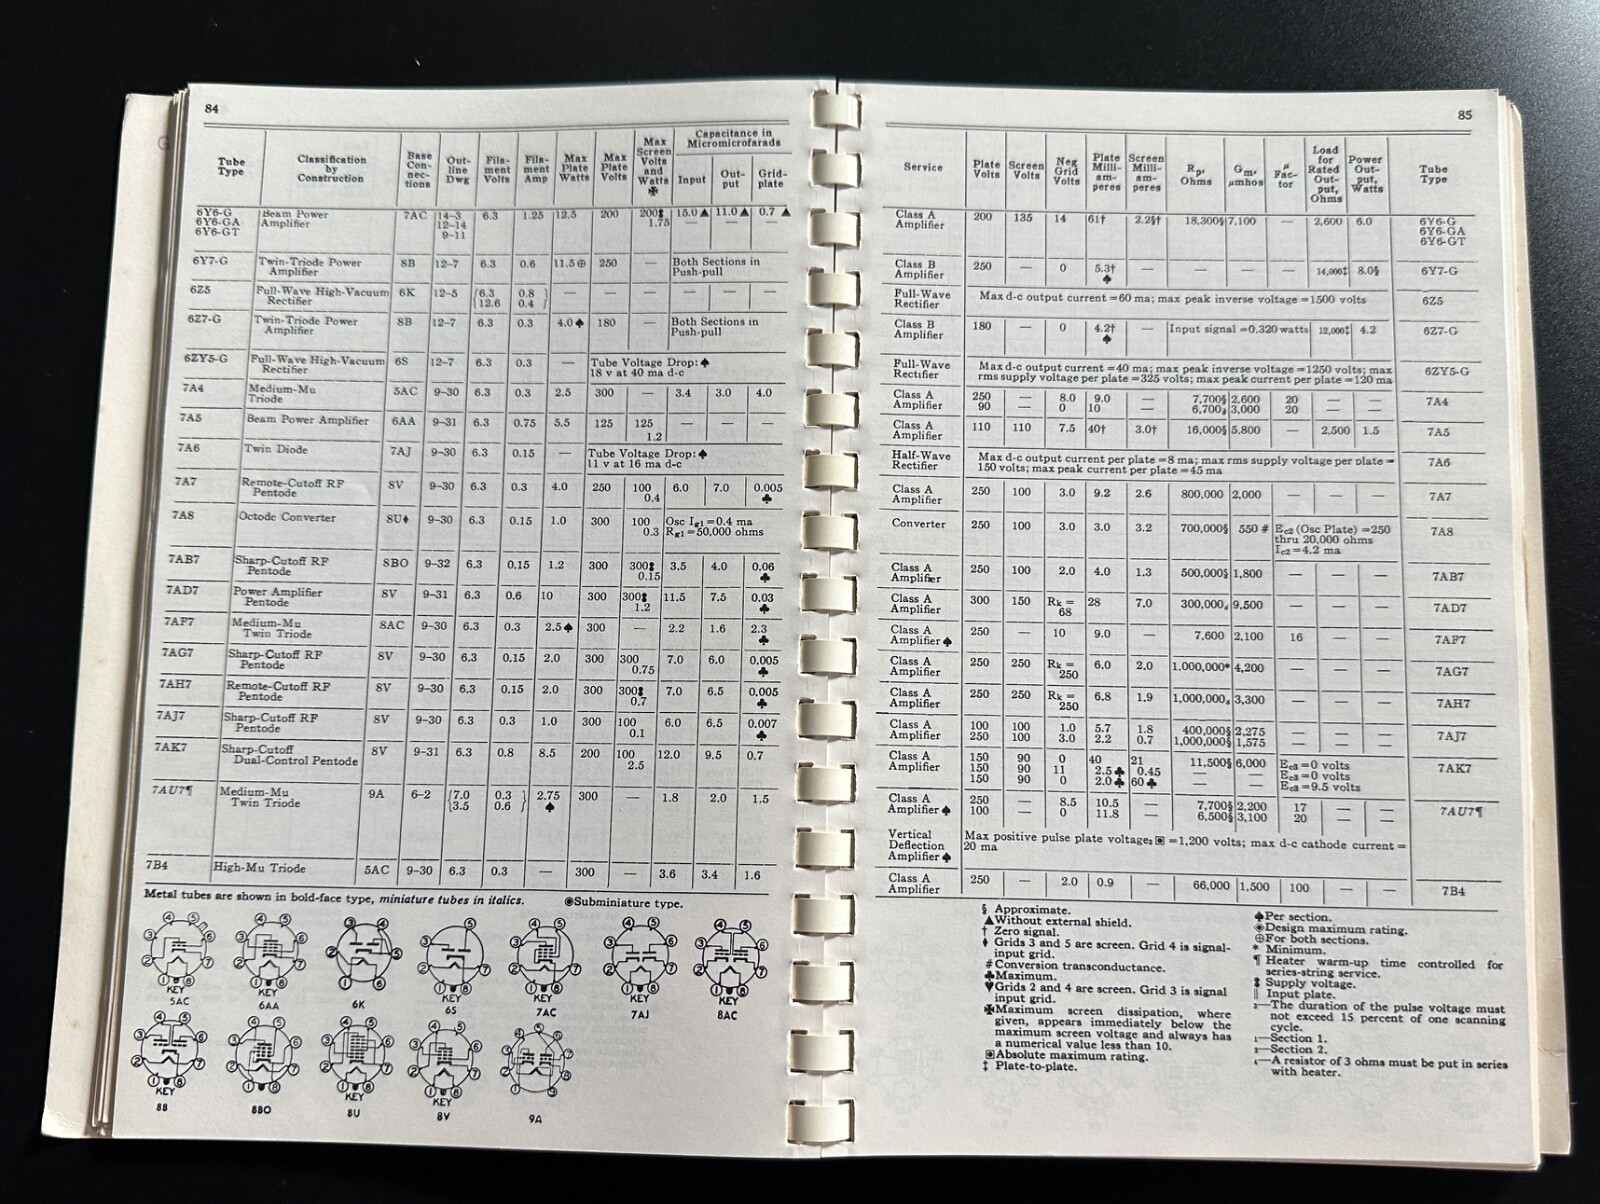 84
Tube Type | Classification by Construction | Base Con-nec-tions | Out-line Dwg | Fila-ment Volts | Fila-ment Amp | Max Plate Watts | Max Plate Volts | Max Screen Volts and Watts ✠ | Capacitance in Micromicrofarads: Input | Out-put | Grid-plate
6Y6-G 6Y6-GA 6Y6-GT | Beam Power Amplifier | 7AC | 14-3 12-14 9-11 | 6.3 | 1.25 | 12.5 | 200 | 200 1.75 | 15.0▲ — | 11.0▲ — | 0.7▲ —
6Y7-G | Twin-Triode Power Amplifier | 8B | 12-7 | 6.3 | 0.6 | 11.5⊕ | 250 | — | Both Sections in Push-pull
6Z5 | Full-Wave High-Vacuum Rectifier | 6K | 12-5 | {6.3 12.6 | 0.8 0.4} | — | — | — | — | — | —
6Z7-G | Twin-Triode Power Amplifier | 8B | 12-7 | 6.3 | 0.3 | 4.0♠ | 180 | — | Both Sections in Push-pull
6ZY5-G | Full-Wave High-Vacuum Rectifier | 6S | 12-7 | 6.3 | 0.3 | — | Tube Voltage Drop:♠ 18 v at 40 ma d-c
7A4 | Medium-Mu Triode | 5AC | 9-30 | 6.3 | 0.3 | 2.5 | 300 | — | 3.4 | 3.0 | 4.0
7A5 | Beam Power Amplifier | 6AA | 9-31 | 6.3 | 0.75 | 5.5 | 125 | 125 1.2 | — | — | —
7A6 | Twin Diode | 7AJ | 9-30 | 6.3 | 0.15 | — | Tube Voltage Drop:♠ 11 v at 16 ma d-c
7A7 | Remote-Cutoff RF Pentode | 8V | 9-30 | 6.3 | 0.3 | 4.0 | 250 | 100 0.4 | 6.0 | 7.0 | 0.005 ♣
7A8 | Octode Converter | 8U♦ | 9-30 | 6.3 | 0.15 | 1.0 | 300 | 100 0.3 | Osc Ig1=0.4 ma Rg1=50,000 ohms
7AB7 | Sharp-Cutoff RF Pentode | 8BO | 9-32 | 6.3 | 0.15 | 1.2 | 300 | 300 0.15 | 3.5 | 4.0 | 0.06 ♣
7AD7 | Power Amplifier Pentode | 8V | 9-31 | 6.3 | 0.6 | 10 | 300 | 300 1.2 | 11.5 | 7.5 | 0.03 ♣
7AF7 | Medium-Mu Twin Triode | 8AC | 9-30 | 6.3 | 0.3 | 2.5♠ | 300 | — | 2.2 | 1.6 | 2.3 ♣
7AG7 | Sharp-Cutoff RF Pentode | 8V | 9-30 | 6.3 | 0.15 | 2.0 | 300 | 300 0.75 | 7.0 | 6.0 | 0.005 ♣
7AH7 | Remote-Cutoff RF Pentode | 8V | 9-30 | 6.3 | 0.15 | 2.0 | 300 | 300 0.7 | 7.0 | 6.5 | 0.005 ♣
7AJ7 | Sharp-Cutoff RF Pentode | 8V | 9-30 | 6.3 | 0.3 | 1.0 | 300 | 100 0.1 | 6.0 | 6.5 | 0.007 ♣
7AK7 | Sharp-Cutoff Dual-Control Pentode | 8V | 9-31 | 6.3 | 0.8 | 8.5 | 200 | 100 2.5 | 12.0 | 9.5 | 0.7
7AU7¶ | Medium-Mu Twin Triode | 9A | 6-2 | {7.0 3.5 | 0.3 0.6} | 2.75 ♠ | 300 | — | 1.8 | 2.0 | 1.5
7B4 | High-Mu Triode | 5AC | 9-30 | 6.3 | 0.3 | — | 300 | — | 3.6 | 3.4 | 1.6
Metal tubes are shown in bold-face type, miniature tubes in italics. ◉Subminiature type.
KEY 5AC
KEY 6AA
6K
KEY 6S
KEY 7AC
KEY 7AJ
KEY 8AC
KEY 8B
8BO
KEY 8U
KEY 8V
9A
85
Service | Plate Volts | Screen Volts | Neg Grid Volts | Plate Milli-am-peres | Screen Milli-am-peres | Rp, Ohms | Gm, µmhos | µ Fac-tor | Load for Rated Out-put, Ohms | Power Out-put, Watts | Tube Type
Class A Amplifier | 200 | 135 | 14 | 61† | 2.2§† | 18,300§ | 7,100 | — | 2,600 | 6.0 | 6Y6-G 6Y6-GA 6Y6-GT
Class B Amplifier | 250 | — | 0 | 5.3† ♠ | — | — | — | — | 14,000‡ | 8.0§ | 6Y7-G
Full-Wave Rectifier | Max d-c output current=60 ma; max peak inverse voltage=1500 volts | 6Z5
Class B Amplifier | 180 | — | 0 | 4.2† ♠ | — | Input signal=0.320 watts | 12,000‡ | 4.2 | 6Z7-G
Full-Wave Rectifier | Max d-c output current=40 ma; max peak inverse voltage=1250 volts; max rms supply voltage per plate=325 volts; max peak current per plate=120 ma | 6ZY5-G
Class A Amplifier | 250 90 | — — | 8.0 0 | 9.0 10 | — — | 7,700§ 6,700 | 2,600 3,000 | 20 20 | — — | — — | 7A4
Class A Amplifier | 110 | 110 | 7.5 | 40† | 3.0† | 16,000§ | 5,800 | — | 2,500 | 1.5 | 7A5
Half-Wave Rectifier | Max d-c output current per plate=8 ma; max rms supply voltage per plate=150 volts; max peak current per plate=45 ma | 7A6
Class A Amplifier | 250 | 100 | 3.0 | 9.2 | 2.6 | 800,000 | 2,000 | — | — | — | 7A7
Converter | 250 | 100 | 3.0 | 3.0 | 3.2 | 700,000§ | 550 # | Ec2 (Osc Plate)=250 thru 20,000 ohms Ic2=4.2 ma | 7A8
Class A Amplifier | 250 | 100 | 2.0 | 4.0 | 1.3 | 500,000§ | 1,800 | — | — | — | 7AB7
Class A Amplifier | 300 | 150 | Rk = 68 | 28 | 7.0 | 300,000 | 9,500 | — | — | — | 7AD7
Class A Amplifier♠ | 250 | — | 10 | 9.0 | — | 7,600 | 2,100 | 16 | — | — | 7AF7
Class A Amplifier | 250 | 250 | Rk = 250 | 6.0 | 2.0 | 1,000,000* | 4,200 | — | — | — | 7AG7
Class A Amplifier | 250 | 250 | Rk = 250 | 6.8 | 1.9 | 1,000,000 | 3,300 | — | — | — | 7AH7
Class A Amplifier | 100 250 | 100 100 | 1.0 3.0 | 5.7 2.2 | 1.8 0.7 | 400,000§ 1,000,000§ | 2,275 1,575 | — — | — — | — — | 7AJ7
Class A Amplifier | 150 150 150 | 90 90 90 | 0 11 0 | 40 2.5♣ 2.0♣ | 21 0.45 60♣ | 11,500§ — — | 6,000 — — | Ec3=0 volts Ec3=0 volts Ec3=9.5 volts | 7AK7
Class A Amplifier♠ | 250 100 | — — | 8.5 0 | 10.5 11.8 | — — | 7,700§ 6,500§ | 2,200 3,100 | 17 20 | — — | — — | 7AU7¶
Vertical Deflection Amplifier♠ | Max positive pulse plate voltage₃▣=1,200 volts; max d-c cathode current=20 ma
Class A Amplifier | 250 | — | 2.0 | 0.9 | — | 66,000 | 1,500 | 100 | — | — | 7B4
§ Approximate.
▲Without external shield.
† Zero signal.
♦ Grids 3 and 5 are screen. Grid 4 is signal-
input grid.
# Conversion transconductance.
♣Maximum.
♥Grids 2 and 4 are screen. Grid 3 is signal
input grid.
✠Maximum screen dissipation, where
given, appears immediately below the
maximum screen voltage and always has
a numerical value less than 10.
▣Absolute maximum rating.
‡ Plate-to-plate.
♠Per section.
◈Design maximum rating.
⊕For both sections.
* Minimum.
¶ Heater warm-up time controlled for
series-string service.
Supply voltage.
‖ Input plate.
₃—The duration of the pulse voltage must
not exceed 15 percent of one scanning
cycle.
₁—Section 1.
₂—Section 2.
₄—A resistor of 3 ohms must be put in series
with heater.